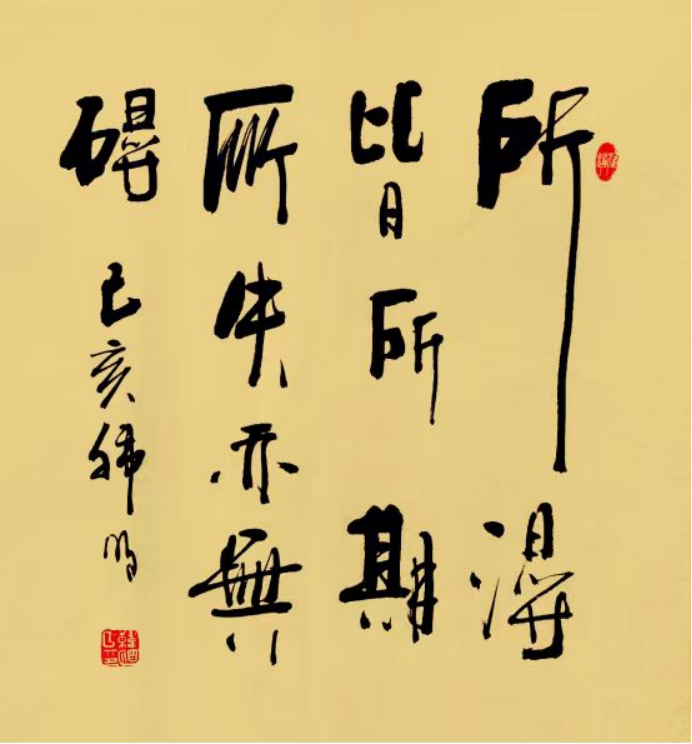 所得
皆所期
所失亦無
礙己亥韩明